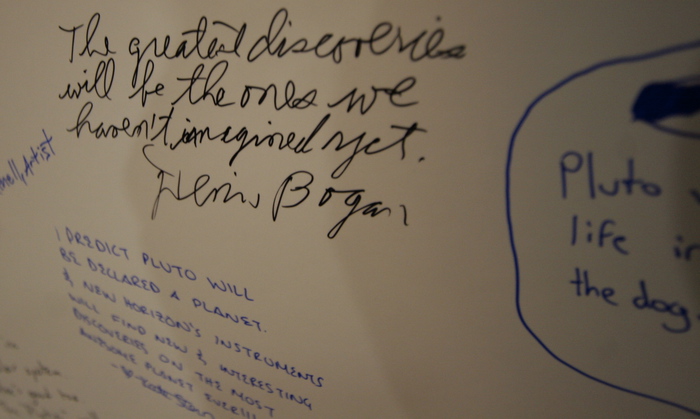 The greatest discoveries
will be the ones we
haven't imagined yet.
Denis Bogan
Artist
I PREDICT PLUTO WILL
BE DECLARED A PLANET.
& NEW HORIZON'S INSTRUMENTS
WILL FIND NEW & INTERESTING
DISCOVERIES ON THE MOST
AWESOME PLANET EVER!!!
Pluto
life in
the dog
system